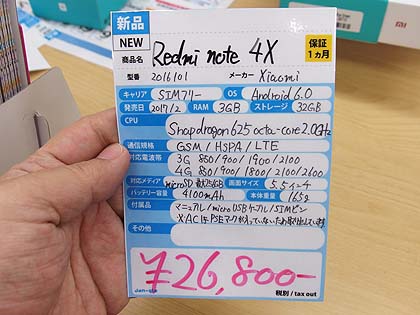 新品
NEW
商品名 Redmi note 4X
保証
1ヵ月
型番 2016101 メーカー Xiaomi
キャリア SIMフリー OS Android 6.0
発売日 2017/2 RAM 3GB ストレージ 32GB
CPU
Snapdragon 625 octa-core 2.0GHz
通信規格 GSM / HSPA / LTE
対応電波帯 3G 850/900/1900/2100
4G 850/900/1800/2100/2600
対応メディア microSD 画面サイズ 5.5インチ
バッテリー容量 4100mAh 本体重量 165g
付属品 マニュアル/microUSBケーブル/SIMピン
※ACはPSEマークが入っていないため取り出しています
その他
¥26,800-
税別 / tax out
mi